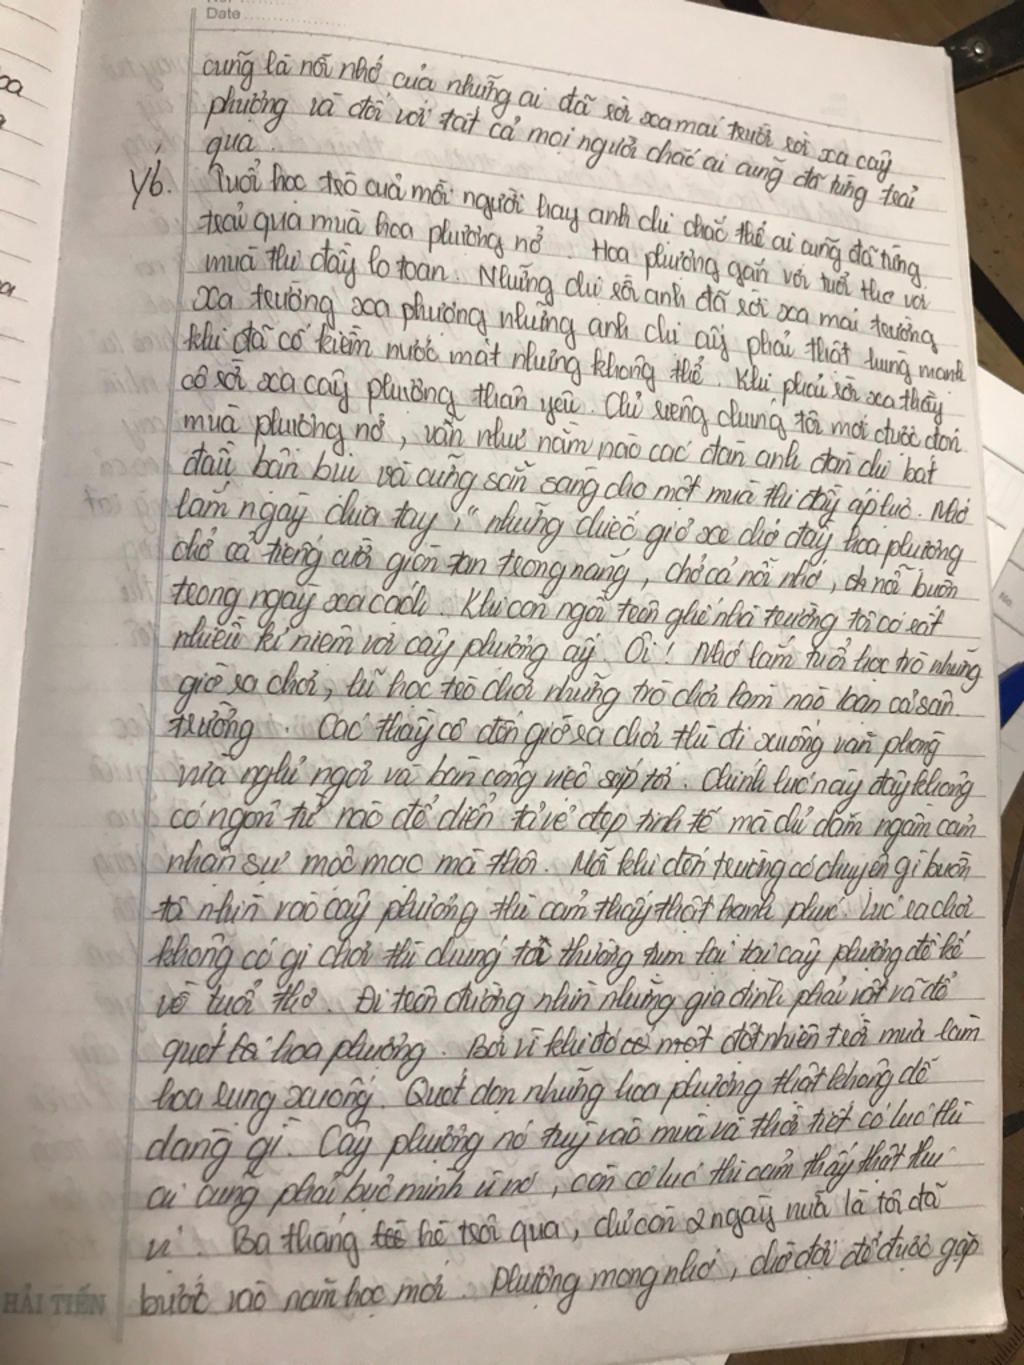 Date
cũng là nỗi nhớ của những ai đã rời xa mái trườ rời xa cây
phượng và đối với tất cả mọi người chắc ai cũng đã từng trải
qua.
Ý6. Tuổi học trò của mỗi người hay anh chị chắc thế ai cũng đã từng
trải qua mùa hoa phượng nở. Hoa phượng gắn với tuổi thơ với
mùa thi đầy lo toan. Những chị rồi anh đã rời xa mái trường
xa trường xa phượng những anh chị ấy phải thật mạnh
khi đã cố kiềm nước mắt nhưng không thể. Khi phải rời xa thầy
cô rời xa cây phường thân yêu. Chỉ riêng chúng tôi mới được đón
mùa phượng nở, vẫn như năm nào các đàn anh đàn chị bắt
đầu bận bụi và cũng sẵn sàng cho một mùa thi đầy áp lực. Nhớ
lắm ngày chia tay, "những chiếc giỏ xe chở đầy hoa phượng
chở cả tiếng cười giòn tan trong nắng, chở cả nỗi nhớ, nỗi buồn
trong ngày xa cách. Khi còn ngồi trên ghế nhà trường tôi có rất
nhiều kỉ niệm với cây phượng ấy. Ôi! Nhớ lắm tuổi học trò những
giờ ra chơi, lũ học trò chơi những trò chơi làm náo loạn cả sân
trường. Các thầy cô đến giờ ra chơi thì đi xuống văn phòng
vừa nghỉ ngơi và bàn công việc sắp tới. Chính lúc này đây không
có ngôn từ nào để diễn tả vẻ đẹp tinh tế mà chỉ dám ngắm cảm
nhận sự mộc mạc mà thôi. Mỗi khi đến trường có chuyện gì buồn
tôi nhìn vào cây phượng thì cảm thấy thật hạnh phúc. Lúc ra chơi
không có gì chơi thì chúng tôi thường tụm lại tại cây phượng để kể
về tuổi thơ. Đi trên đường nhìn những gia đình phải vất vả để
quét hoa phượng. Bởi vì khi đó có một đột nhiên trời mưa làm
hoa rụng xuống. Quét dọn những hoa phượng thật không dễ
dàng gì. Cây phượng nó tuỳ vào mùa và thời tiết có lúc thì
ai cũng phải bực mình vì nó, còn có lúc thì cảm thấy thật thú
vị. Ba tháng hè trôi qua, chỉ còn 2 ngày nữa là tôi đã
bước vào năm học mới. Phượng mong nhớ, chờ đợi để được gặp
HẢI TIẾN